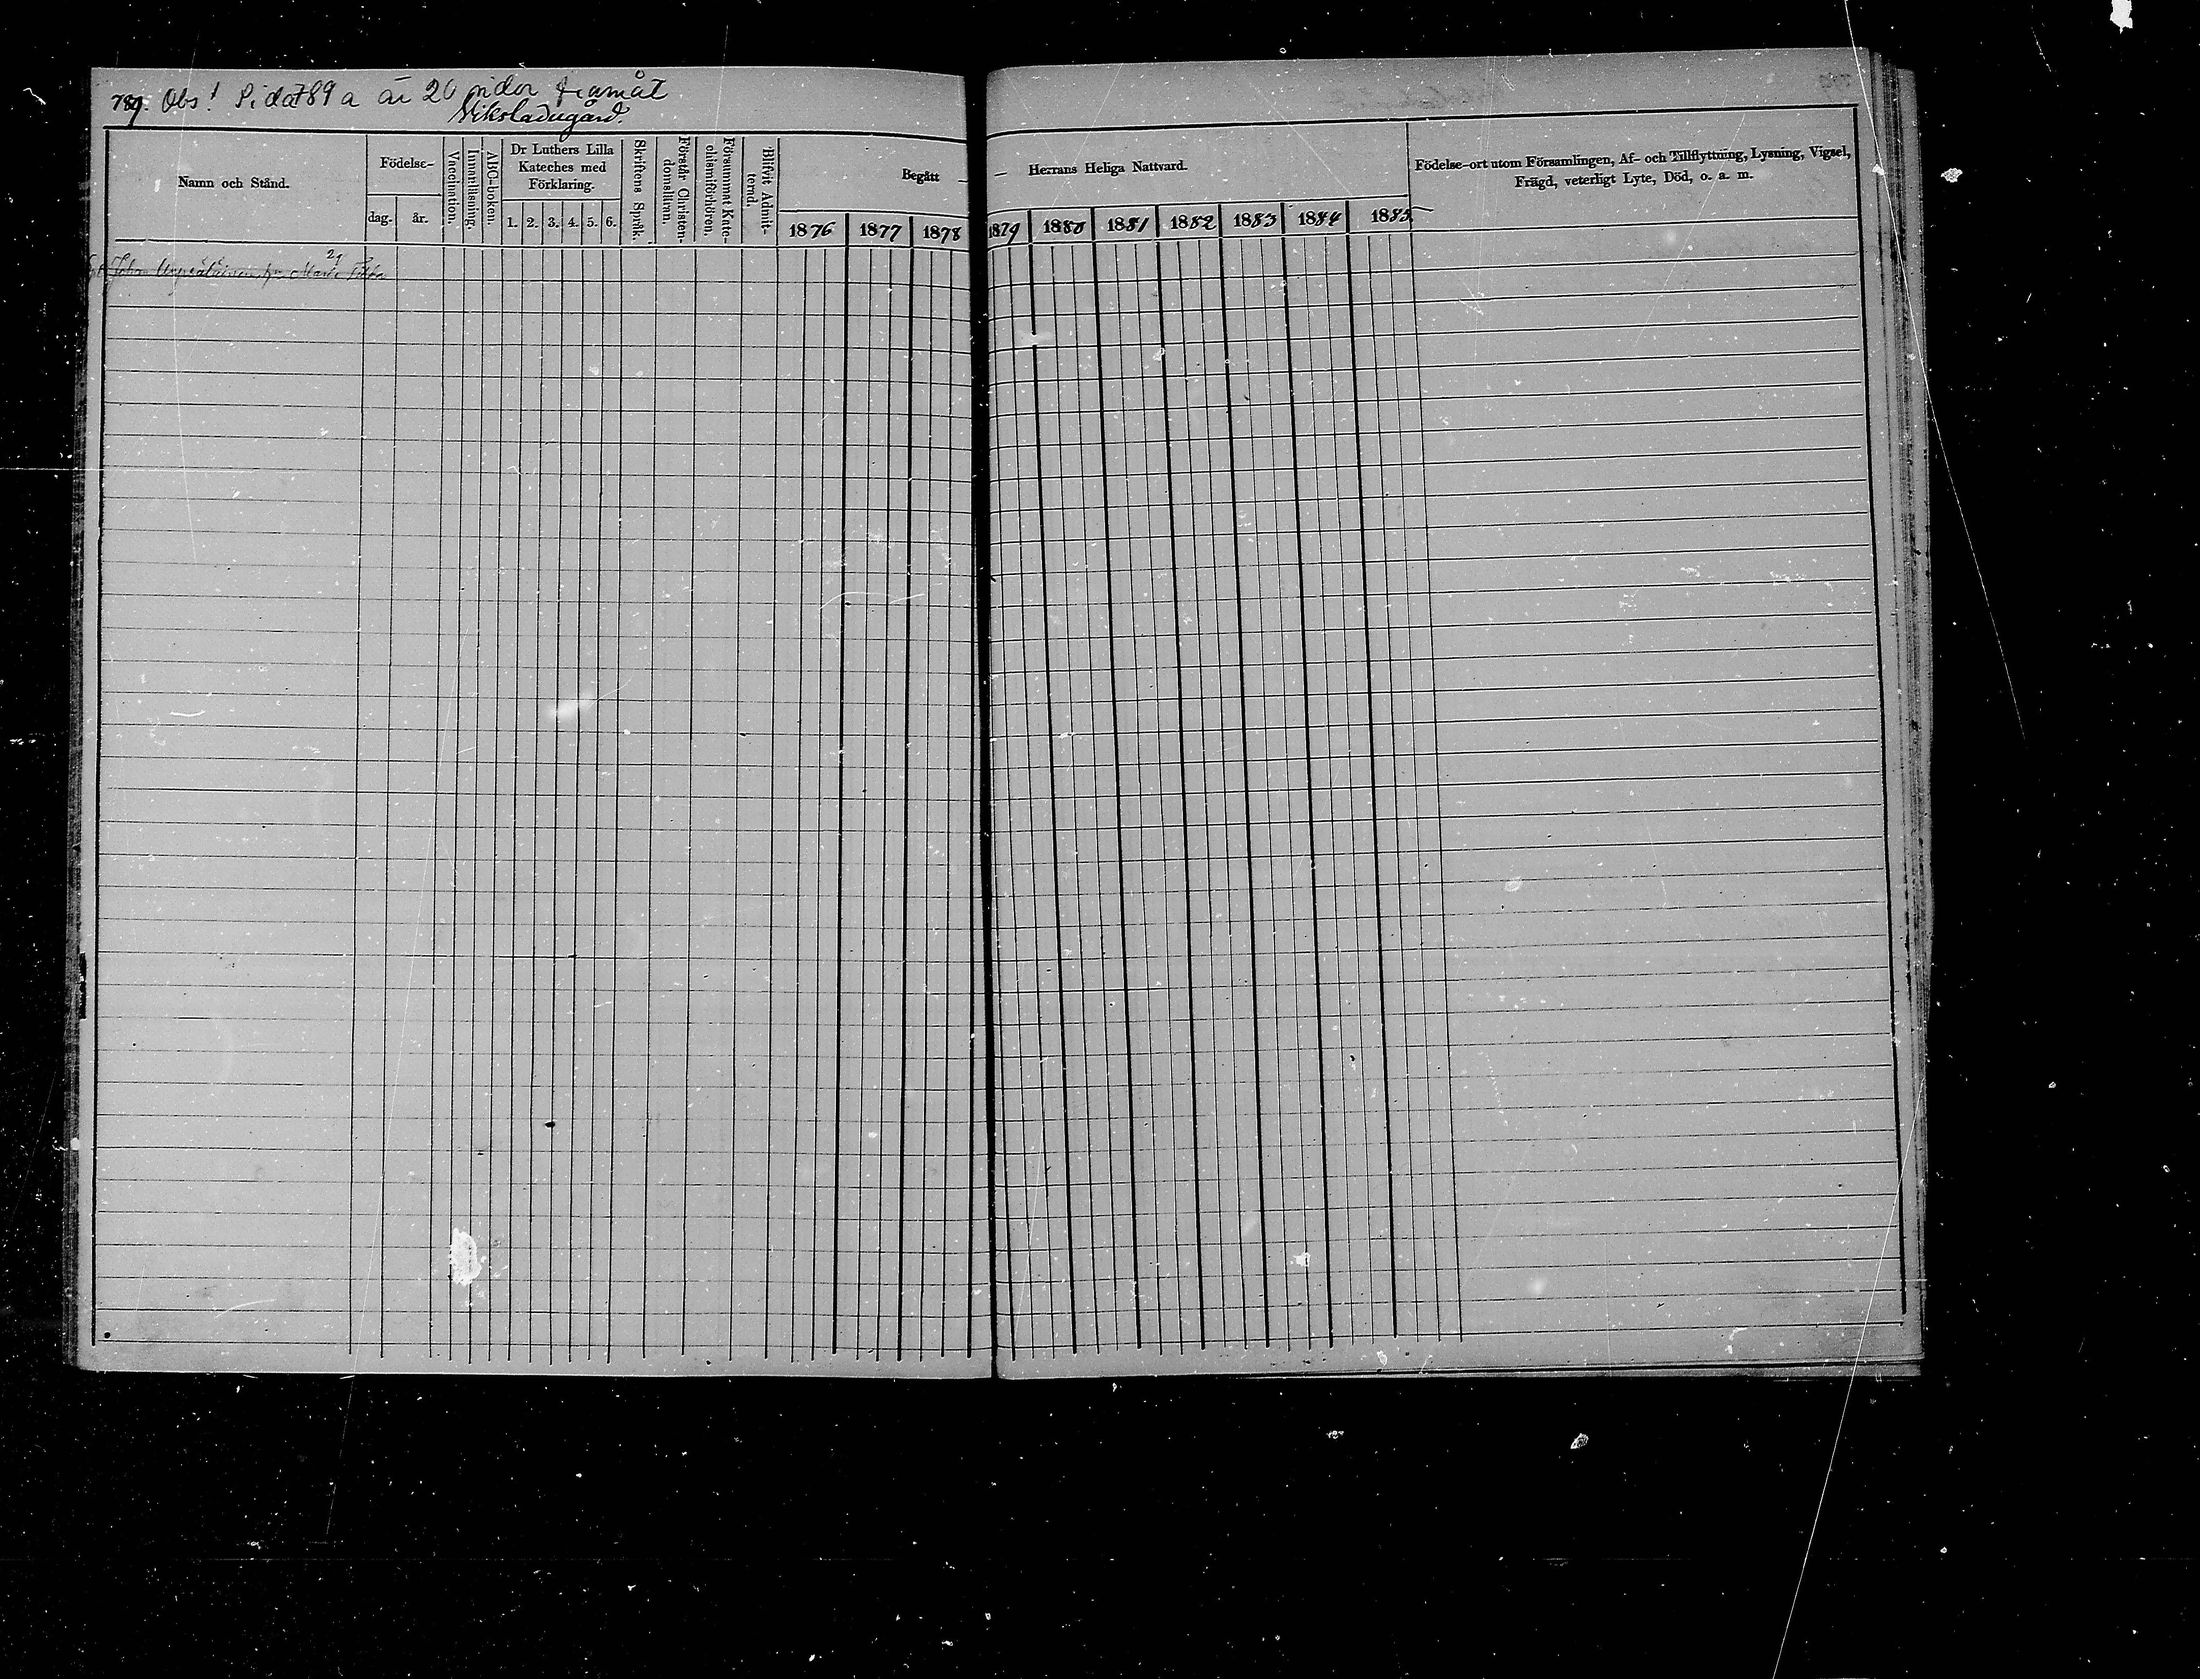 789. Obs! Sida 789 a är 20 sidor framåt
Viksladugård.
Namn och Stånd.
Födelse-
dag.
år.
Vaccination.
Innanläsning.
ABC-boken.
Dr Luthers Lilla
Kateches med
Förklaring.
1. 2. 3. 4. 5. 6.
Skriftens Språk.
Förstår Christen-
domslänn.
Försummat Kate-
chismiförhören.
Blifvit Admit-
terad.
Begått — — Herrans Heliga Nattvard.
1876 1877 1878 1879 1880 1881 1882 1883 1884 1885
Födelse-ort utom Församlingen, Af- och Tillflyttning, Lysning, Vigsel,
Frägd, veterligt Lyte, Död, o. a. m.
21
Johan